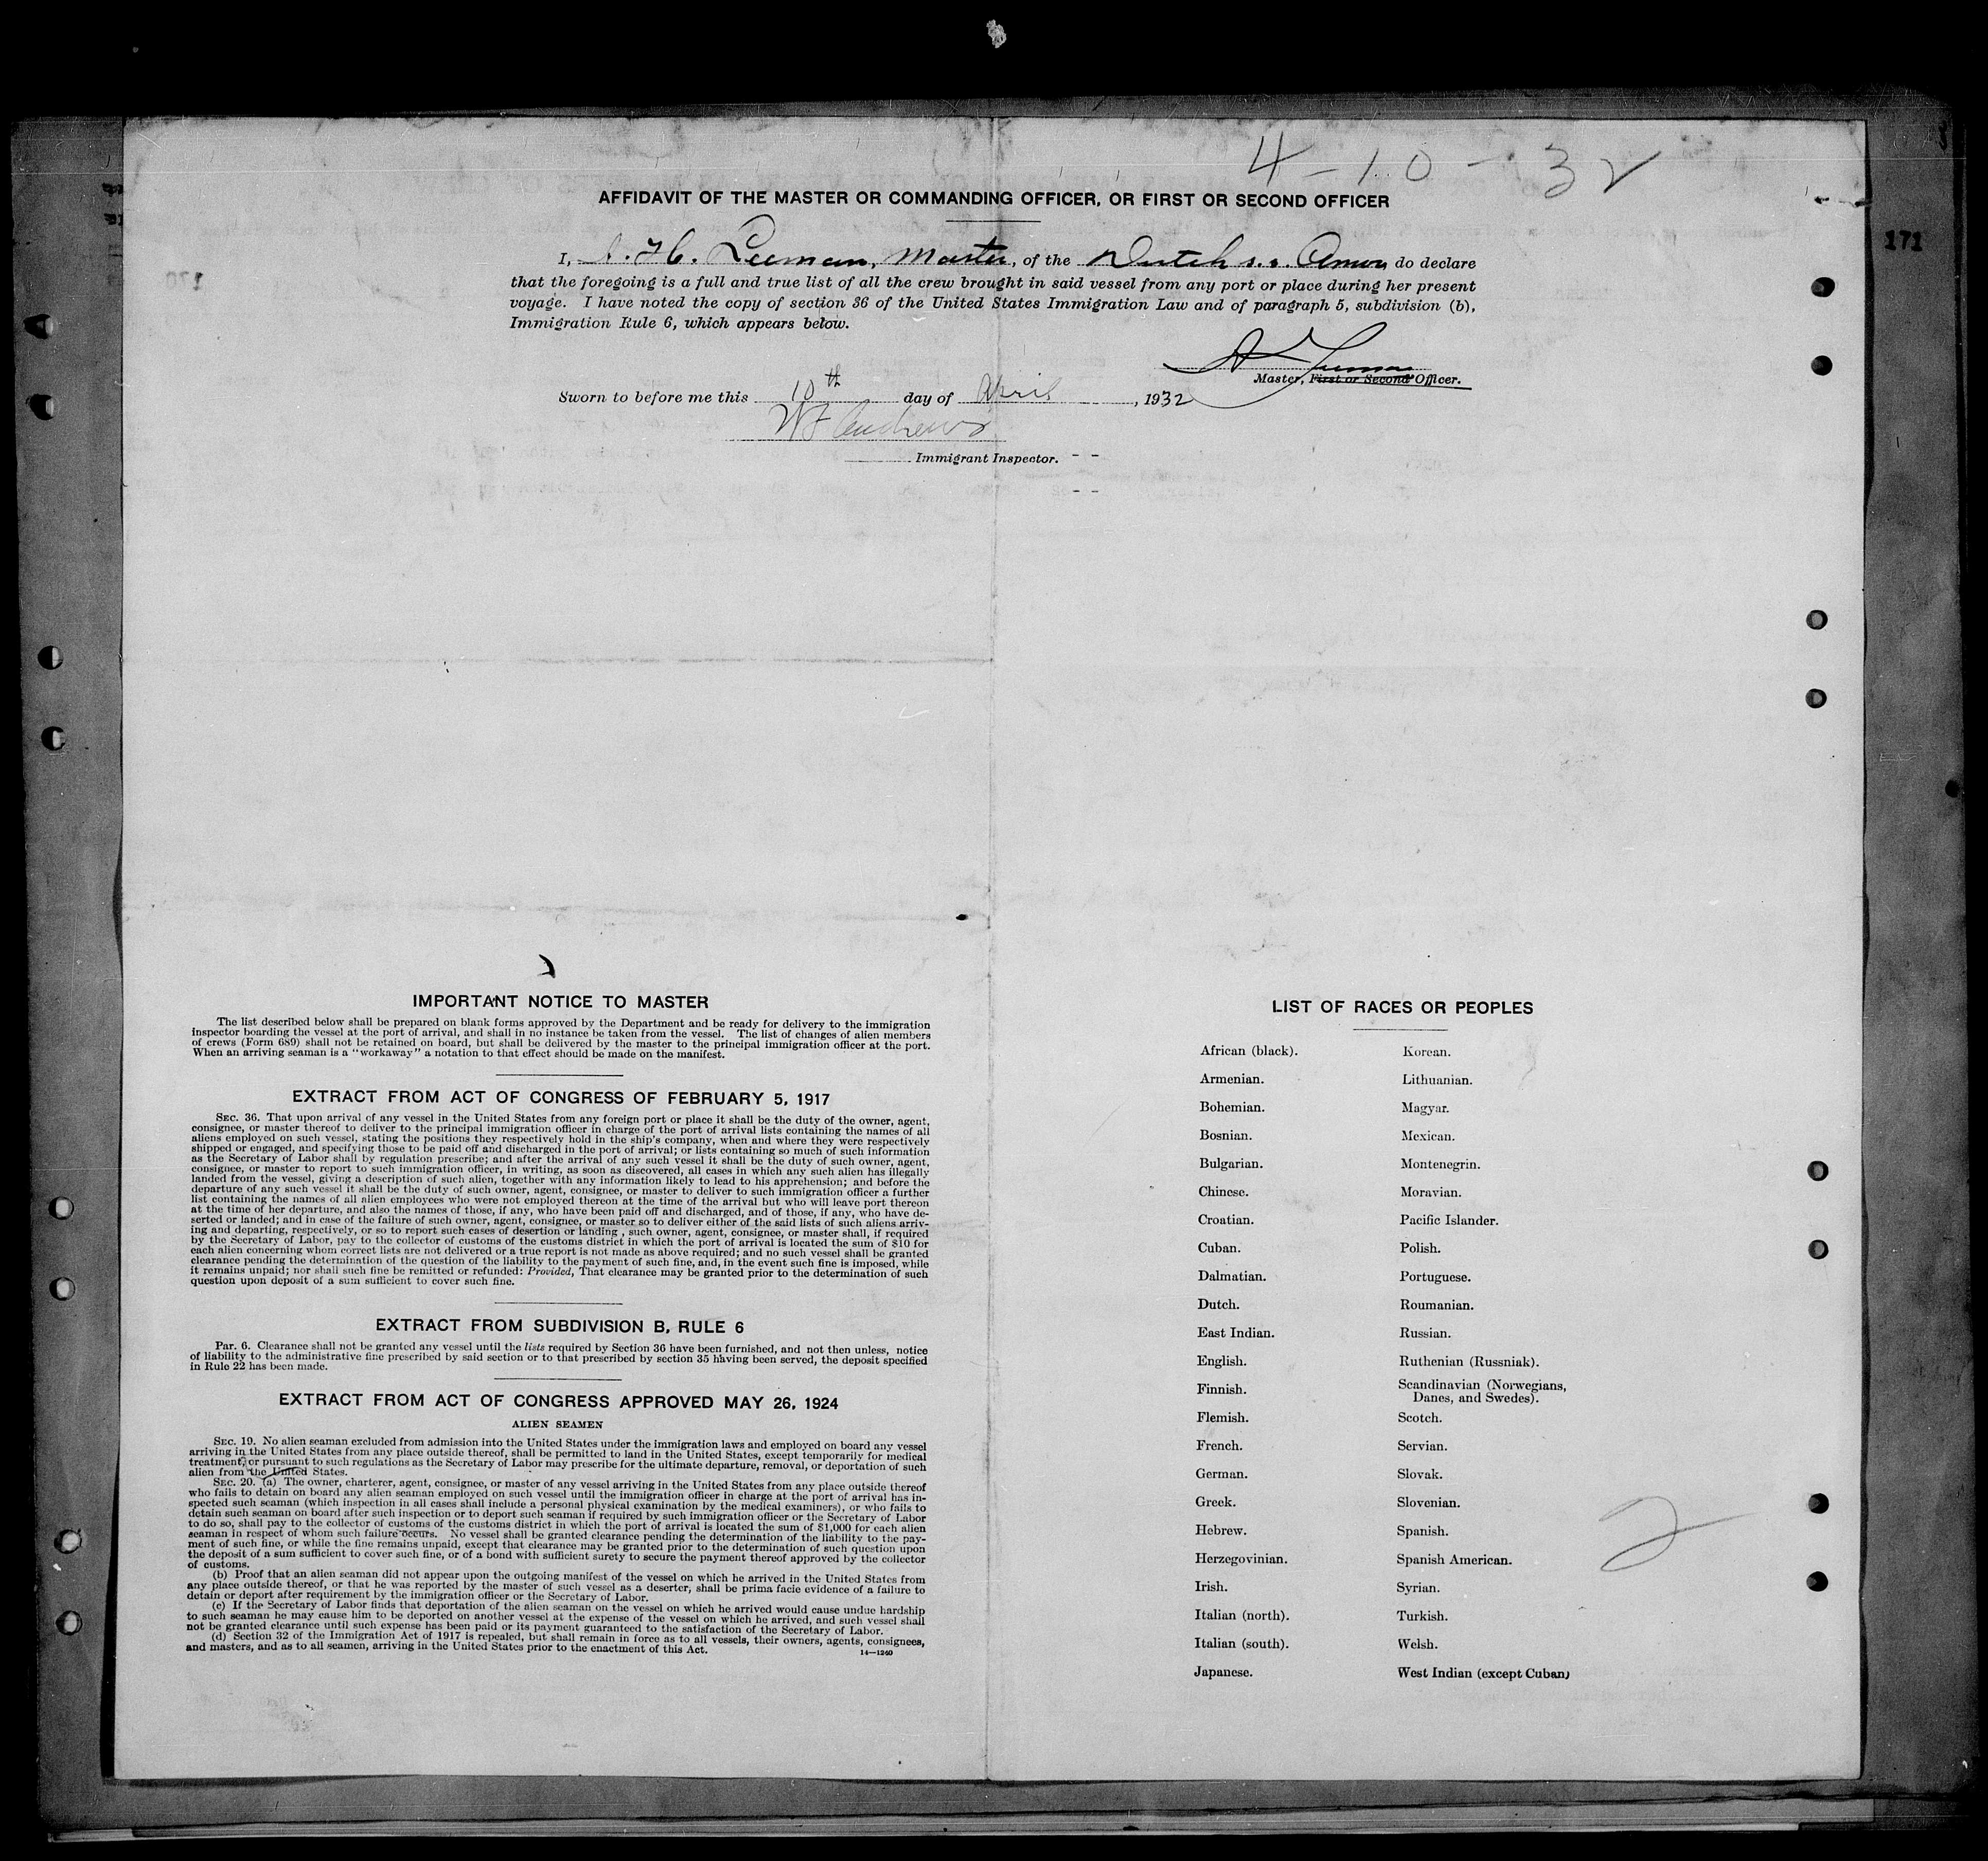 4-10-32
AFFIDAVIT OF THE MASTER OR COMMANDING OFFICER, OR FIRST OR SECOND OFFICER
171
I, H. Leeman, Master, of the Dutch s.s. Amor do declare
that the foregoing is a full and true list of all the crew brought in said vessel from any port or place during her present
voyage. I have noted the copy of section 36 of the United States Immigration Law and of paragraph 5, subdivision (b),
Immigration Rule 6, which appears below.
Leeman
Master, First or Second Officer.
Sworn to before me this 10th day of April, 1932
W F Andrews
Immigrant Inspector.
IMPORTANT NOTICE TO MASTER
The list described below shall be prepared on blank forms approved by the Department and be ready for delivery to the immigration
inspector boarding the vessel at the port of arrival, and shall in no instance be taken from the vessel. The list of changes of alien members
of crews (Form 689) shall not be retained on board, but shall be delivered by the master to the principal immigration officer at the port.
When an arriving seaman is a "workaway" a notation to that effect should be made on the manifest.
EXTRACT FROM ACT OF CONGRESS OF FEBRUARY 5, 1917
SEC. 36. That upon arrival of any vessel in the United States from any foreign port or place it shall be the duty of the owner, agent,
consignee, or master thereof to deliver to the principal immigration officer in charge of the port of arrival lists containing the names of all
aliens employed on such vessel, stating the positions they respectively hold in the ship's company, when and where they were respectively
shipped or engaged, and specifying those to be paid off and discharged in the port of arrival; or lists containing so much of such information
as the Secretary of Labor shall by regulation prescribe; and after the arrival of any such vessel it shall be the duty of such owner, agent,
consignee, or master to report to such immigration officer, in writing, as soon as discovered, all cases in which any such alien has illegally
landed from the vessel, giving a description of such alien, together with any information likely to lead to his apprehension; and before the
departure of any such vessel it shall be the duty of such owner, agent, consignee, or master to deliver to such immigration officer a further
list containing the names of all alien employees who were not employed thereon at the time of the arrival but who will leave port thereon
at the time of her departure, and also the names of those, if any, who have been paid off and discharged, and of those, if any, who have de-
serted or landed; and in case of the failure of such owner, agent, consignee, or master so to deliver either of the said lists of such aliens arriv-
ing and departing, respectively, or so to report such cases of desertion or landing , such owner, agent, consignee, or master shall, if required
by the Secretary of Labor, pay to the collector of customs of the customs district in which the port of arrival is located the sum of $10 for
each alien concerning whom correct lists are not delivered or a true report is not made as above required; and no such vessel shall be granted
clearance pending the determination of the question of the liability to the payment of such fine, and, in the event such fine is imposed, while
it remains unpaid; nor shall such fine be remitted or refunded: Provided, That clearance may be granted prior to the determination of such
question upon deposit of a sum sufficient to cover such fine.
EXTRACT FROM SUBDIVISION B, RULE 6
Par. 6. Clearance shall not be granted any vessel until the lists required by Section 36 have been furnished, and not then unless, notice
of liability to the administrative fine prescribed by said section or to that prescribed by section 35 having been served, the deposit specified
in Rule 22 has been made.
EXTRACT FROM ACT OF CONGRESS APPROVED MAY 26, 1924
ALIEN SEAMEN
SEC. 19. No alien seaman excluded from admission into the United States under the immigration laws and employed on board any vessel
arriving in the United States from any place outside thereof, shall be permitted to land in the United States, except temporarily for medical
treatment, or pursuant to such regulations as the Secretary of Labor may prescribe for the ultimate departure, removal, or deportation of such
alien from the United States.
SEC. 20. (a) The owner, charterer, agent, consignee, or master of any vessel arriving in the United States from any place outside thereof
who fails to detain on board any alien seaman employed on such vessel until the immigration officer in charge at the port of arrival has in-
spected such seaman (which inspection in all cases shall include a personal physical examination by the medical examiners), or who fails to
detain such seaman on board after such inspection or to deport such seaman if required by such immigration officer or the Secretary of Labor
to do so, shall pay to the collector of customs of the customs district in which the port of arrival is located the sum of $1,000 for each alien
seaman in respect of whom such failure occurs. No vessel shall be granted clearance pending the determination of the liability to the pay-
ment of such fine, or while the fine remains unpaid, except that clearance may be granted prior to the determination of such question upon
the deposit of a sum sufficient to cover such fine, or of a bond with sufficient surety to secure the payment thereof approved by the collector
of customs.
(b) Proof that an alien seaman did not appear upon the outgoing manifest of the vessel on which he arrived in the United States from
any place outside thereof, or that he was reported by the master of such vessel as a deserter, shall be prima facie evidence of a failure to
detain or deport after requirement by the immigration officer or the Secretary of Labor.
(c) If the Secretary of Labor finds that deportation of the alien seaman on the vessel on which he arrived would cause undue hardship
to such seaman he may cause him to be deported on another vessel at the expense of the vessel on which he arrived, and such vessel shall
not be granted clearance until such expense has been paid or its payment guaranteed to the satisfaction of the Secretary of Labor.
(d) Section 32 of the Immigration Act of 1917 is repealed, but shall remain in force as to all vessels, their owners, agents, consignees,
and masters, and as to all seamen, arriving in the United States prior to the enactment of this Act.
14—1240
LIST OF RACES OR PEOPLES
African (black).
Armenian.
Bohemian.
Bosnian.
Bulgarian.
Chinese.
Croatian.
Cuban.
Dalmatian.
Dutch.
East Indian.
English.
Finnish.
Flemish.
French.
German.
Greek.
Hebrew.
Herzegovinian.
Irish.
Italian (north).
Italian (south).
Japanese.
Korean.
Lithuanian.
Magyar.
Mexican.
Montenegrin.
Moravian.
Pacific Islander.
Polish.
Portuguese.
Roumanian.
Russian.
Ruthenian (Russniak).
Scandinavian (Norwegians,
Danes, and Swedes).
Scotch.
Servian.
Slovak.
Slovenian.
Spanish.
Spanish American.
Syrian.
Turkish.
Welsh.
West Indian (except Cuban)
2